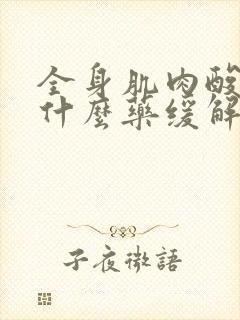 全身肌肉酸
什麼藥緩解
子夜微語